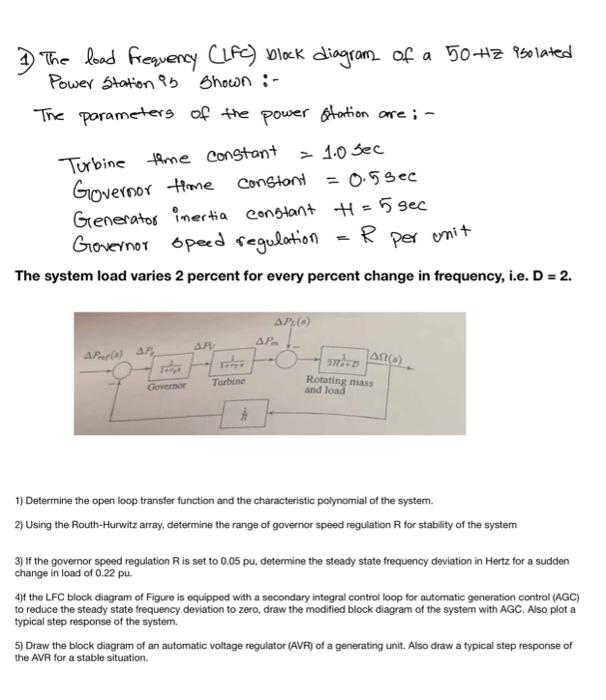 1) The load frequency (LFC) block diagram of a 50-Hz isolated
Power station is shown :-
The parameters of the power station are :-
Turbine time constant = 1.0 sec
Governor time constant = 0.5 sec
Generator inertia constant H = 5 sec
Governor speed regulation = R per unit
The system load varies 2 percent for every percent change in frequency, i.e. D = 2.
ΔPL(s)
ΔPref(s) ΔPg ΔPv ΔPm ΔΩ(s)
Governor Turbine Rotating mass
and load
1/R
1) Determine the open loop transfer function and the characteristic polynomial of the system.
2) Using the Routh-Hurwitz array, determine the range of governor speed regulation R for stability of the system
3) If the governor speed regulation R is set to 0.05 pu, determine the steady state frequency deviation in Hertz for a sudden
change in load of 0.22 pu.
4)f the LFC block diagram of Figure is equipped with a secondary integral control loop for automatic generation control (AGC)
to reduce the steady state frequency deviation to zero, draw the modified block diagram of the system with AGC. Also plot a
typical step response of the system.
5) Draw the block diagram of an automatic voltage regulator (AVR) of a generating unit. Also draw a typical step response of
the AVR for a stable situation.